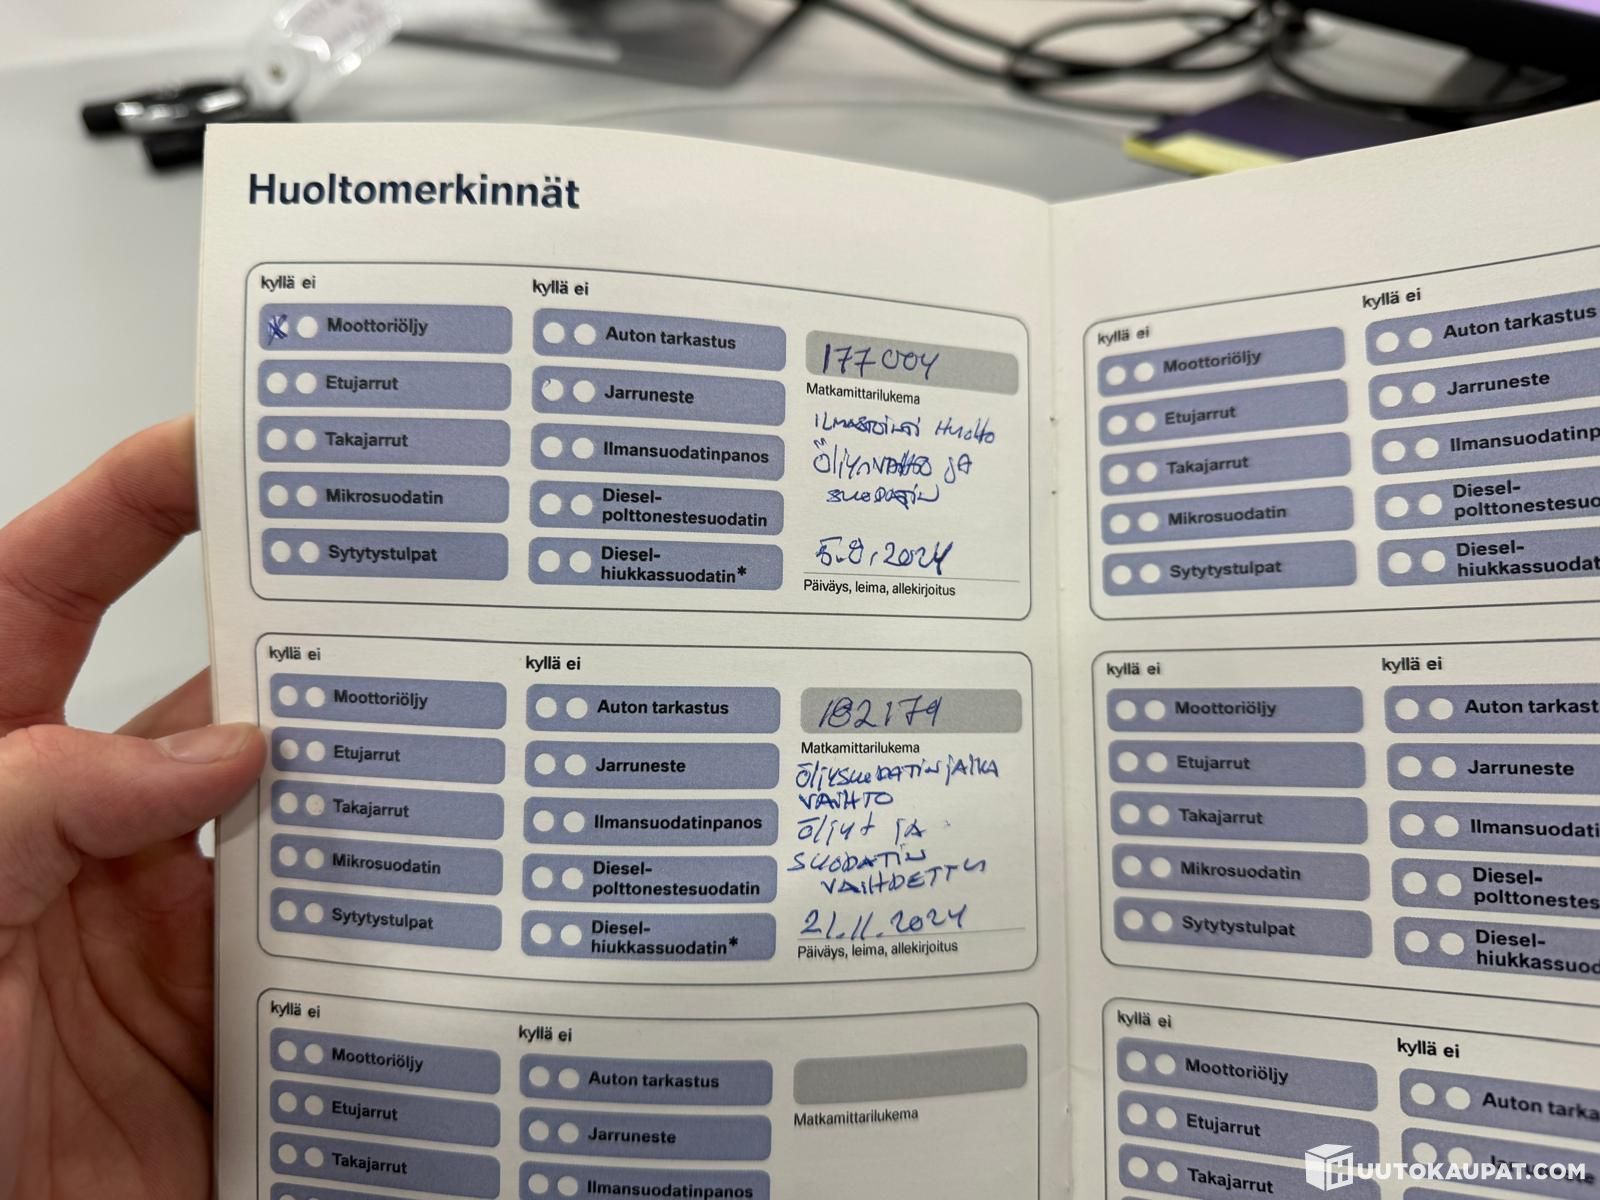 Huoltomerkinnät
kyllä ei
Moottoriöljy
Etujarrut
Takajarrut
Mikrosuodatin
Sytytystulpat
kyllä ei
Auton tarkastus
Jarruneste
Ilmansuodatinpanos
Diesel-
polttonestesuodatin
Diesel-
hiukkassuodatin*
177004
Matkamittarilukema
Huolto
Öljynvaihto ja
suodatin
5.8.2024
Päiväys, leima, allekirjoitus
kyllä ei
Moottoriöljy
Etujarrut
Takajarrut
Mikrosuodatin
Sytytystulpat
kyllä ei
Auton tarkastus
Jarruneste
Ilmansuodatinpanos
Diesel-
polttonestesuodatin
Diesel-
hiukkassuodatin*
182179
Matkamittarilukema
ÖljYSUODATINJALKA
VAIHTO
öljyt ja
SUODATIN
VAIHDETTU
21.11.2024
Päiväys, leima, allekirjoitus
kyllä ei
Moottoriöljy
Etujarrut
Takajarrut
kyllä ei
Auton tarkastus
Jarruneste
Ilmansuodatinpanos
Matkamittarilukema
kyllä ei
Moottoriöljy
Etujarrut
Takajarrut
Mikrosuodatin
Sytytystulpat
kyllä ei
Auton tarkastus
Jarruneste
Ilmansuodatinp
Diesel-
polttonestesuo
Diesel-
hiukkassuodat
kyllä ei
Moottoriöljy
Etujarrut
Takajarrut
Mikrosuodatin
Sytytystulpat
kyllä ei
Auton tarkast
Jarruneste
Ilmansuodati
Diesel-
polttonestes
Diesel-
hiukkassuod
kyllä ei
Moottoriöljy
Etujarrut
Takajarrut
kyllä ei
Auton tarka
UUTOKAUPAT.COM